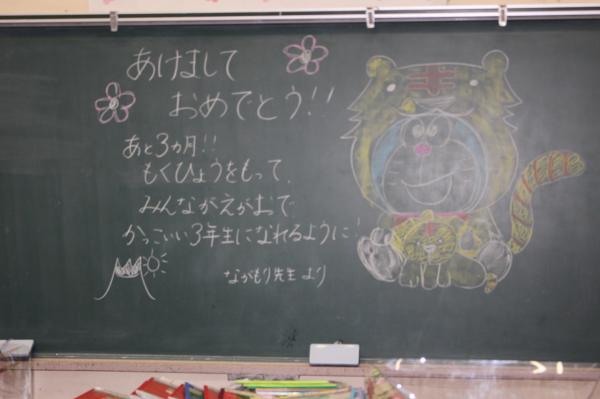 あけまして
おめでとう!!
あと3カ月!!
もくひょうをもって、
みんながえがおで、
かっこいい3年生になれるように!
ながもり先生より